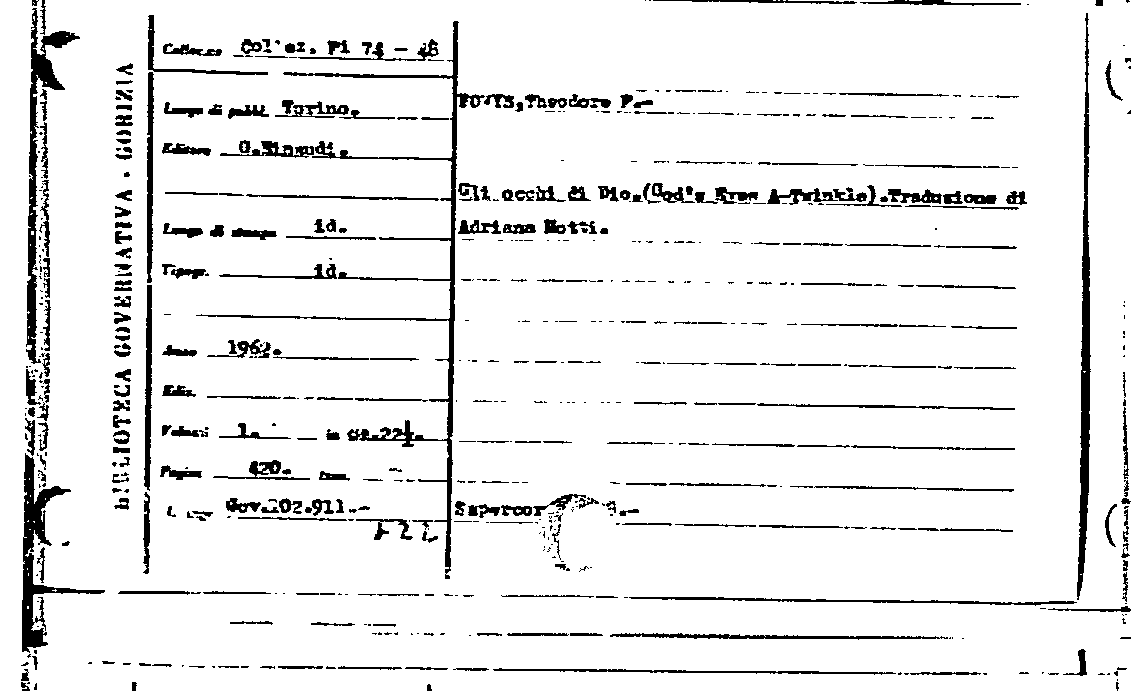 BIBLIOTECA GOVERNATIVA - GORIZIA
Collocaz. Collez. Pi 74 - 48
Luogo di pubbl. Torino.
Editore G.Einaudi.
Luogo di stampa id.
Tipogr. id.
Anno 1962.
Ediz.
Volumi 1. in cm.22½.
Pagine 420. tavv. -
Gov.202.911.-
POWYS,Theodore F.-
Gli occhi di Dio.(God's Eyes A-Twinkle).Traduzione di
Adriana Motti.